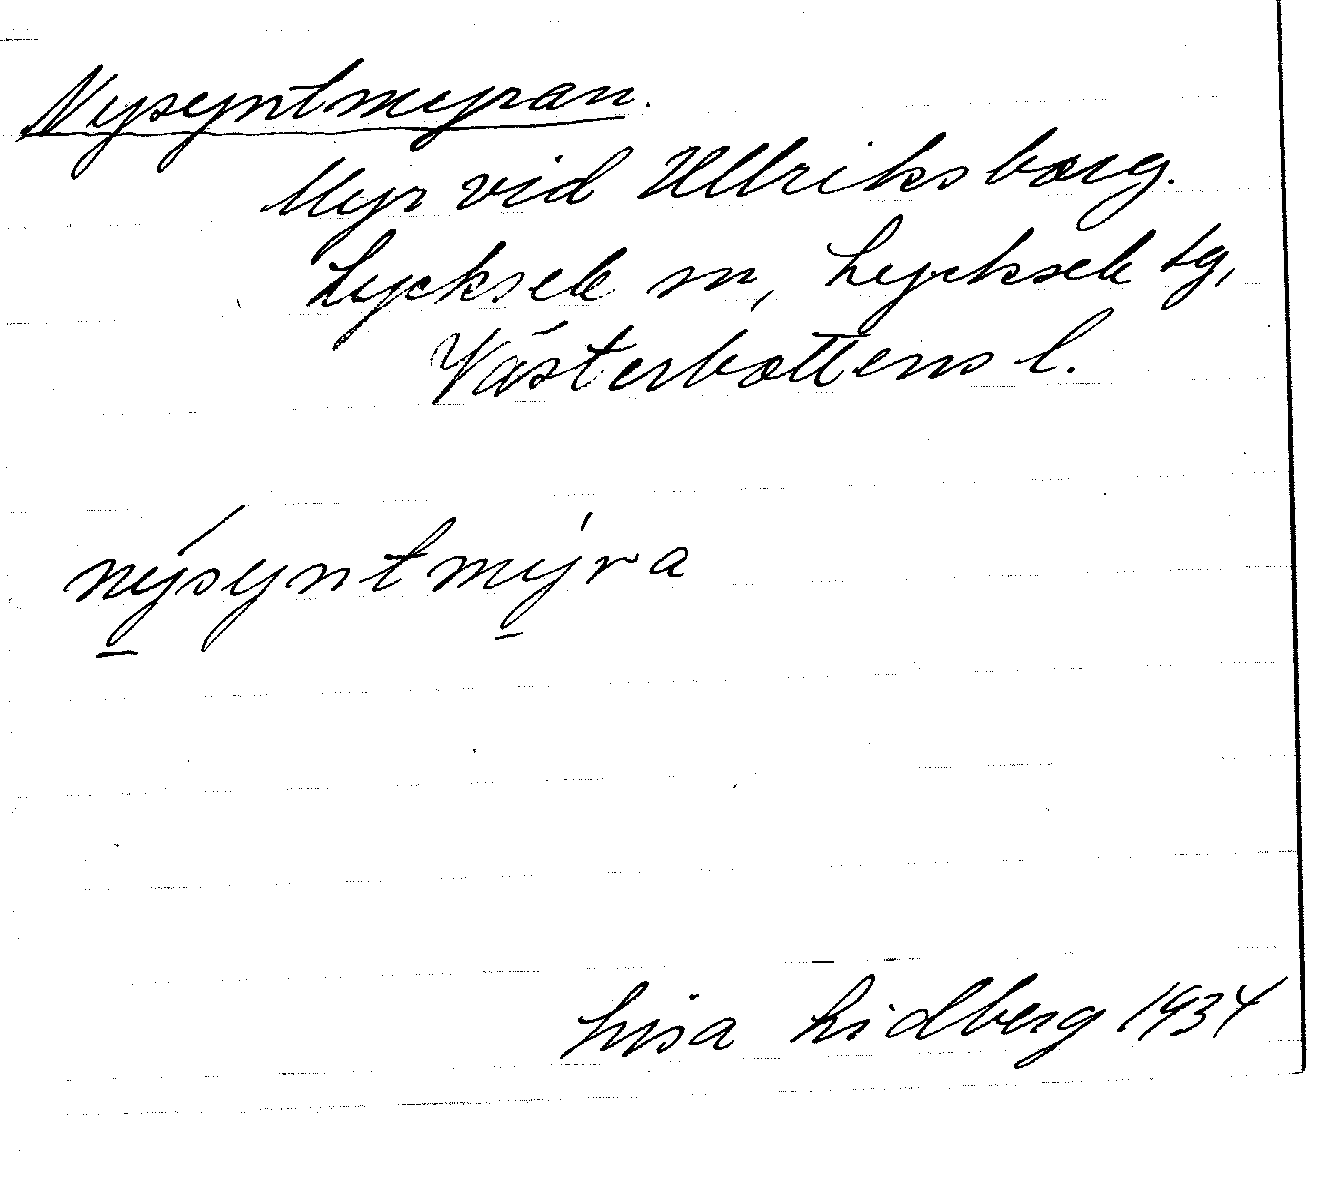 Nysyntmyran.
Myr vid Ullriksborg.
Lycksele sn, Lycksele tg,
Västerbottens l.
nýsyntmýra
Lisa Lidberg 1934